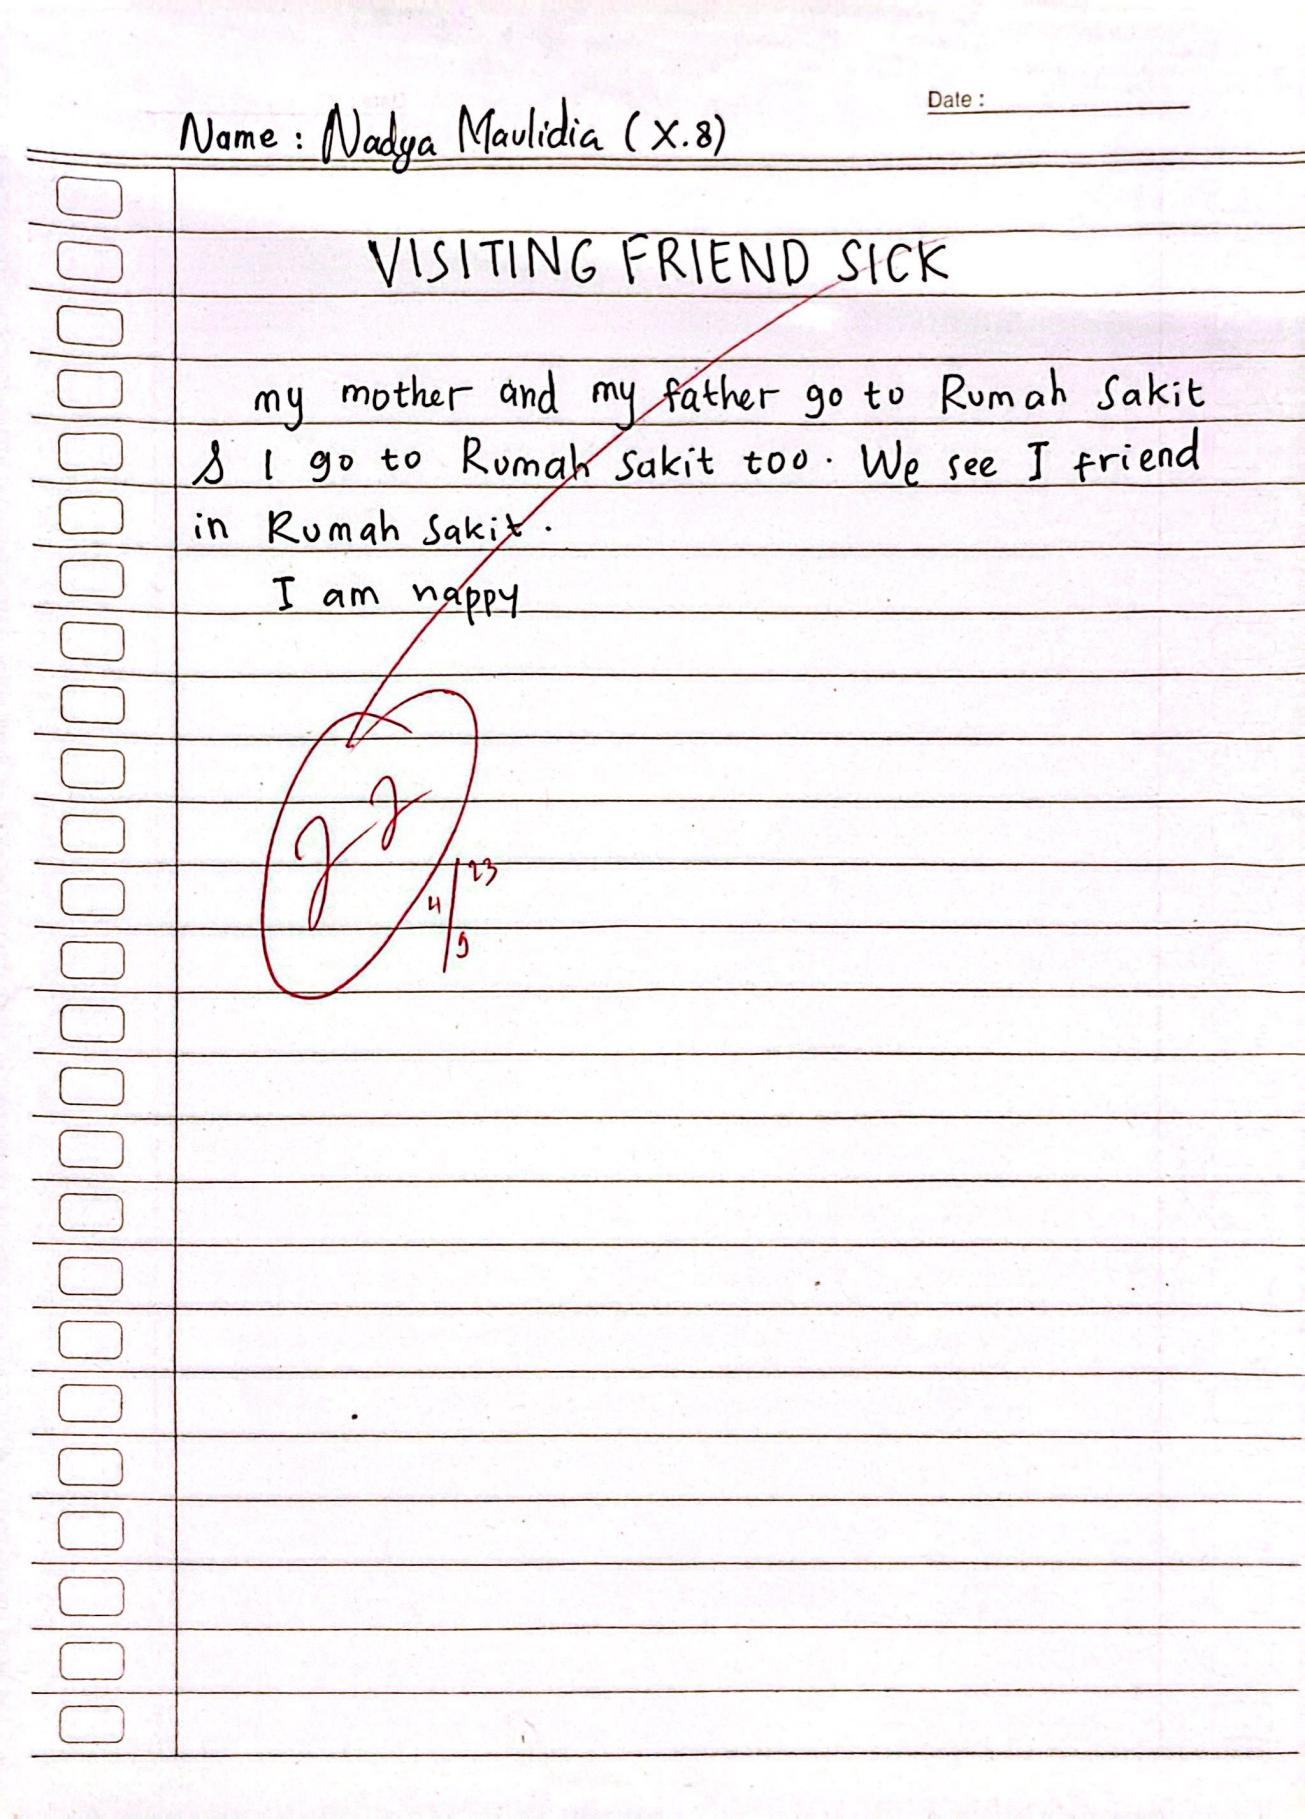 Date :
Name : Nadya Maulidia (X.8)
VISITING FRIEND SICK
my mother and my father go to Rumah Sakit
& I go to Rumah Sakit too. We see I friend
in Rumah Sakit.
I am happy
4/9 23